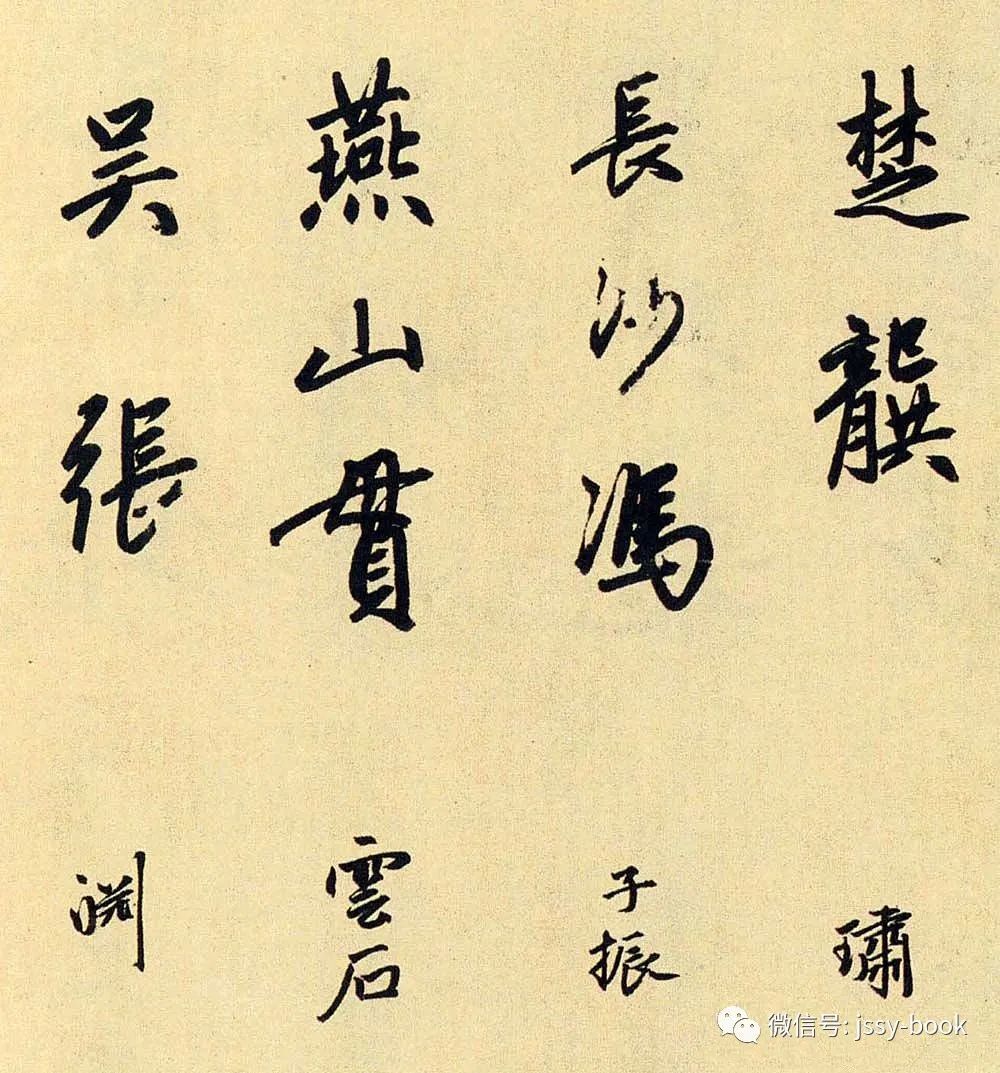 楚龔 璛
長沙馮 子振
燕山貫 雲石
吴張 渊
微信号: jssy-book